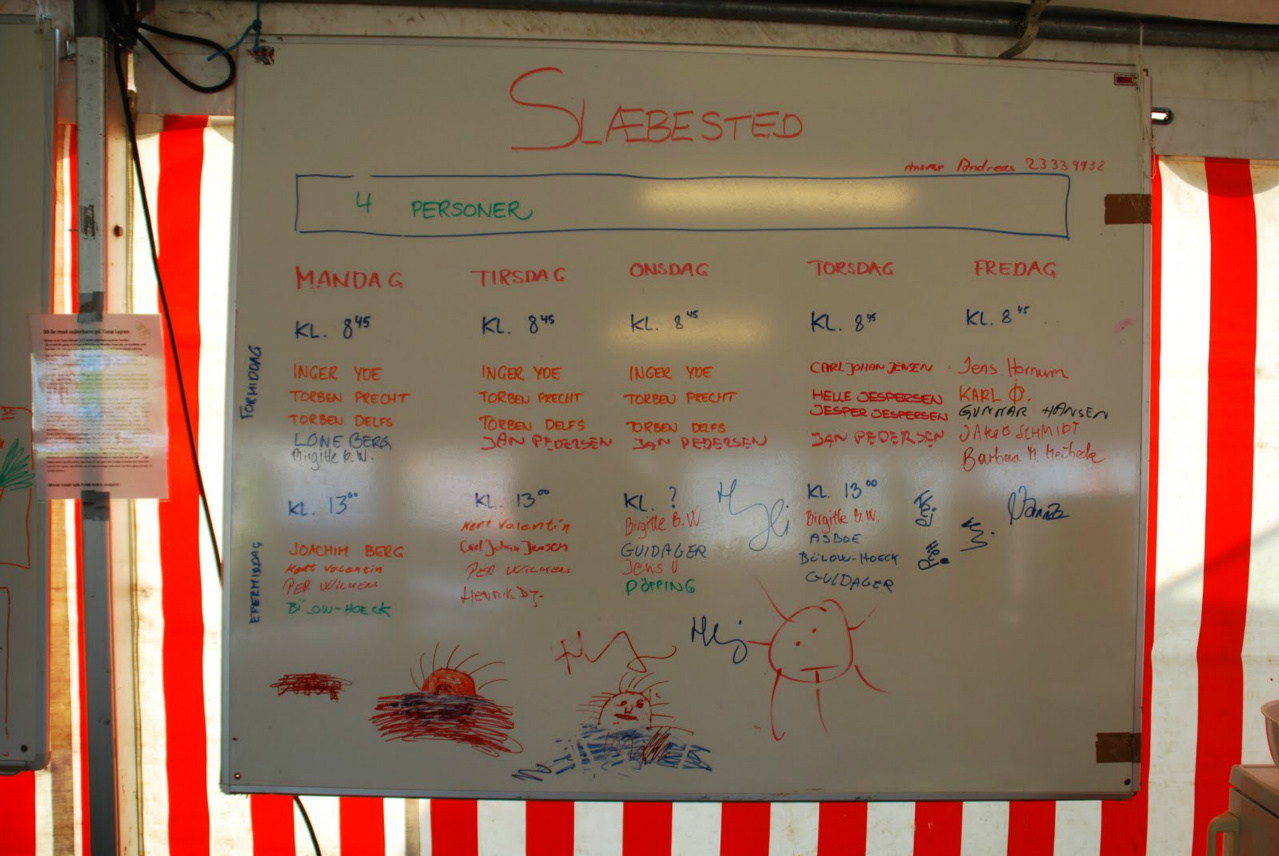 SLÆBESTED
Andreas 23339932
4 PERSONER
MANDAG TIRSDAG ONSDAG TORSDAG FREDAG
FORMIDDAG
KL. 8 45 KL. 8 45 KL. 8 45 KL. 8 45 KL. 8 45
INGER YDE INGER YDE INGER YDE CARL JOHAN JENSEN Jens Hornum
TORBEN PRECHT TORBEN PRECHT TORBEN PRECHT HELLE JESPERSEN KARL Ø.
TORBEN DELFS TORBEN DELFS TORBEN DELFS JESPER JESPERSEN GUNNAR HANSEN
LONE BERG JAN PEDERSEN JAN PEDERSEN JAN PEDERSEN JAKOB SCHMIDT
Birgitte B.W. Barbara M
EFTERMIDDAG
KL. 13 00 KL. 13 00 KL. ? KL. 13 00
JOACHIM BERG Kert Valentin Birgitte B.W. Birgitte B.W.
Kert Valentin Carl Johan Jensen GUIDAGER ASBOE
PER WILMEN PER WILMEN Jens U BÜLOW-HOECK
BÜLOW-HOECK Henrik DÖPPING GULDAGER
Hej
Hej
Hej